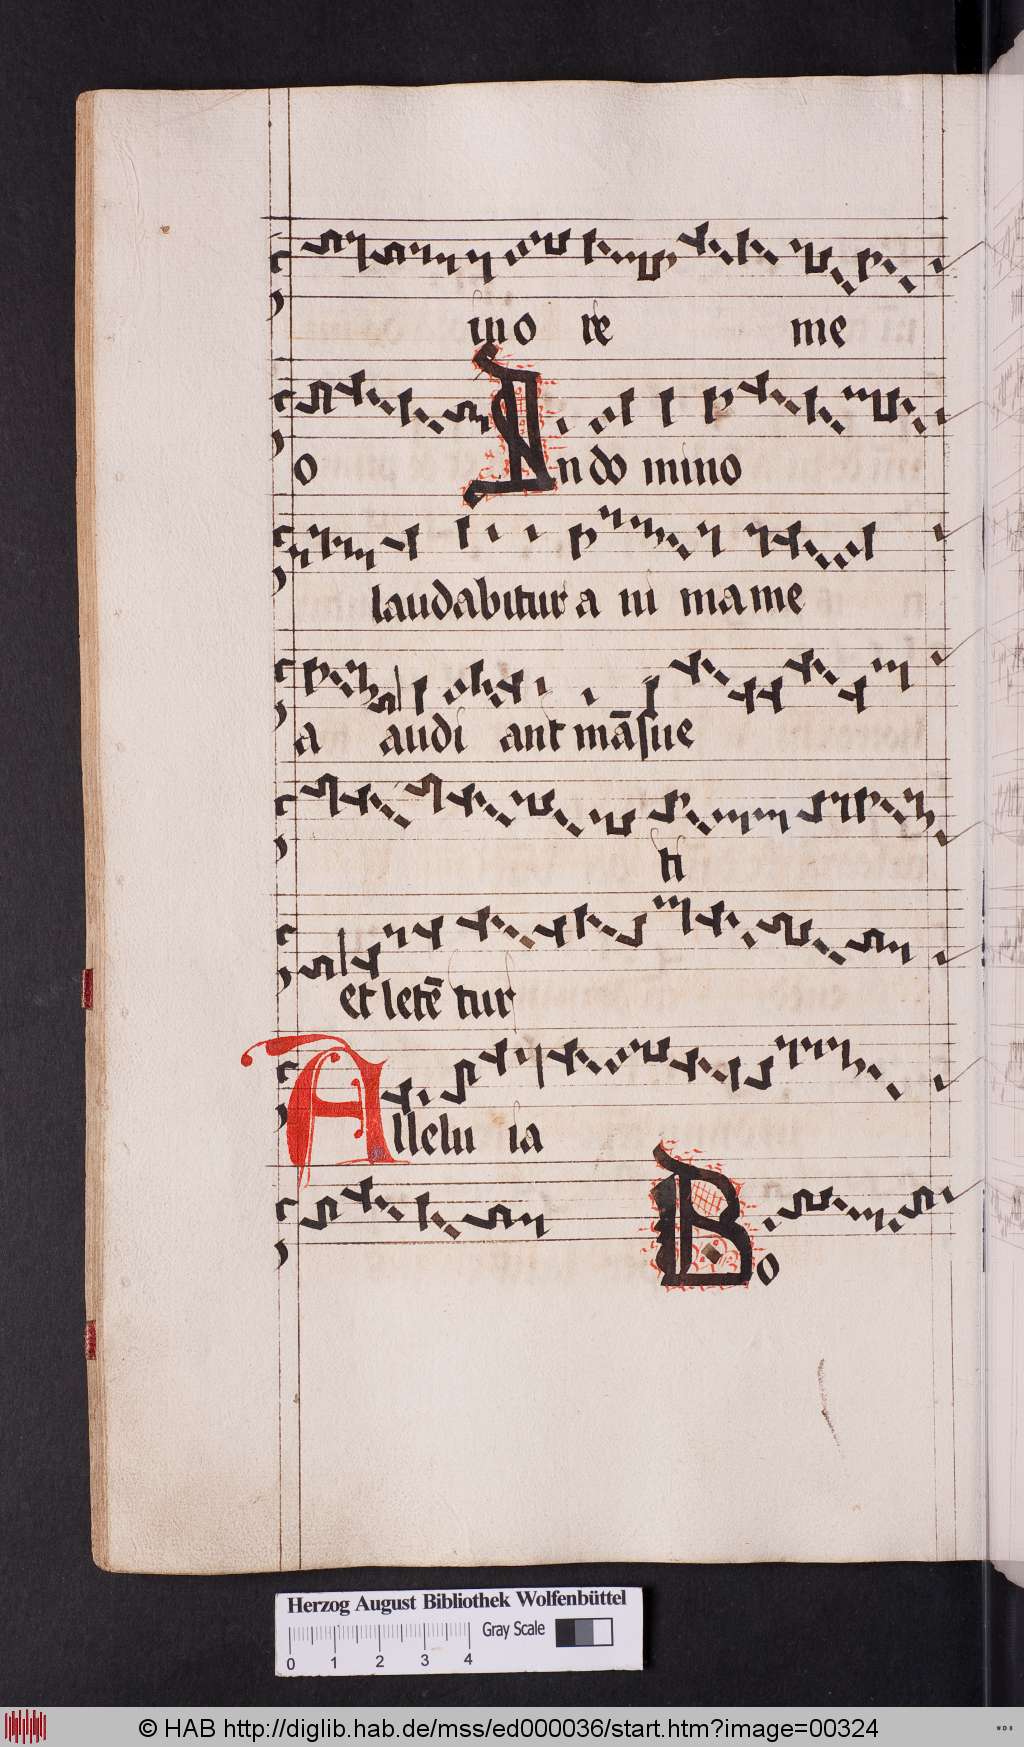 in o re me
o In do mino
laudabitur a ni ma me
a audi ant mā sue
ti
et letē tur
Allelu ia
Bo
Herzog August Bibliothek Wolfenbüttel
Gray Scale
0 1 2 3 4
© HAB http://diglib.hab.de/mss/ed000036/start.htm?image=00324